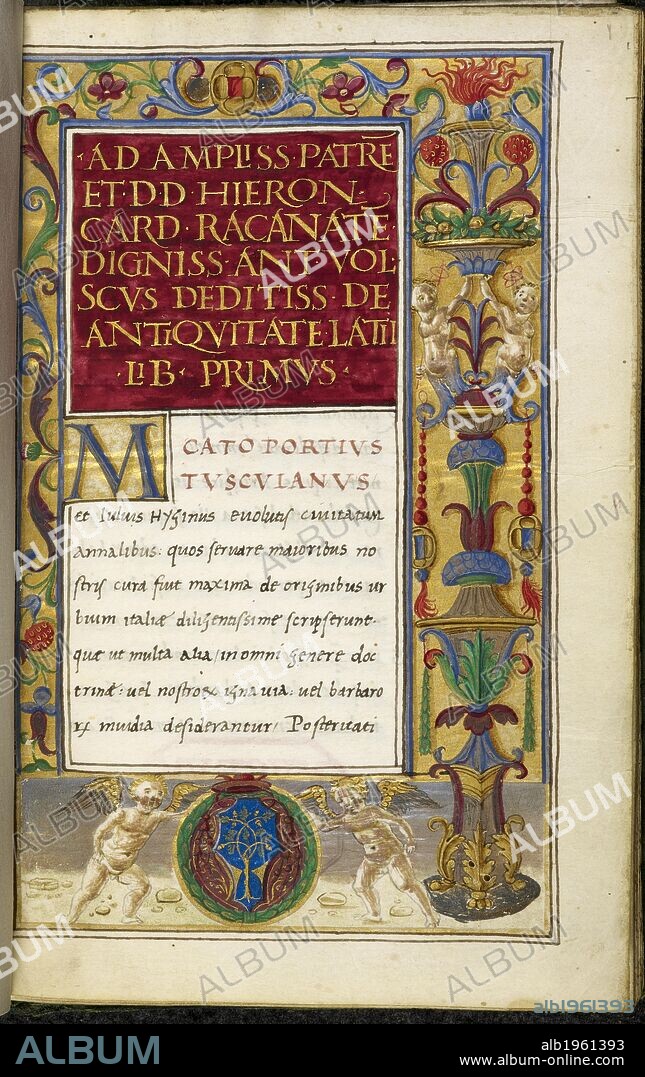 ·AD AMPLISS·PATRE̅
ET·DD·HIERON·
CARD·RACANATE̅·
DIGNISS·ANT·VOL·
SCVS DEDITISS·DE
ANTIQVITATE LATII
·LIB·PRIMVS·
M CATO PORTIVS
TUSCULANUS
et Iulius Hyginus evolutis civitatum
annalibus: quos servare maioribus no
stris cura fuit maxima de originibus ur
bium italiæ diligentissime scripserunt·
quæ ut multa alia/in omni genere doc
trinæ: uel nostroꝝ ignauia: uel barbaro
ꝝ inuidia desiderantur/ Posteritati
ALBUM
alb1961393
ALBUM
alb1961393
www.album-online.com